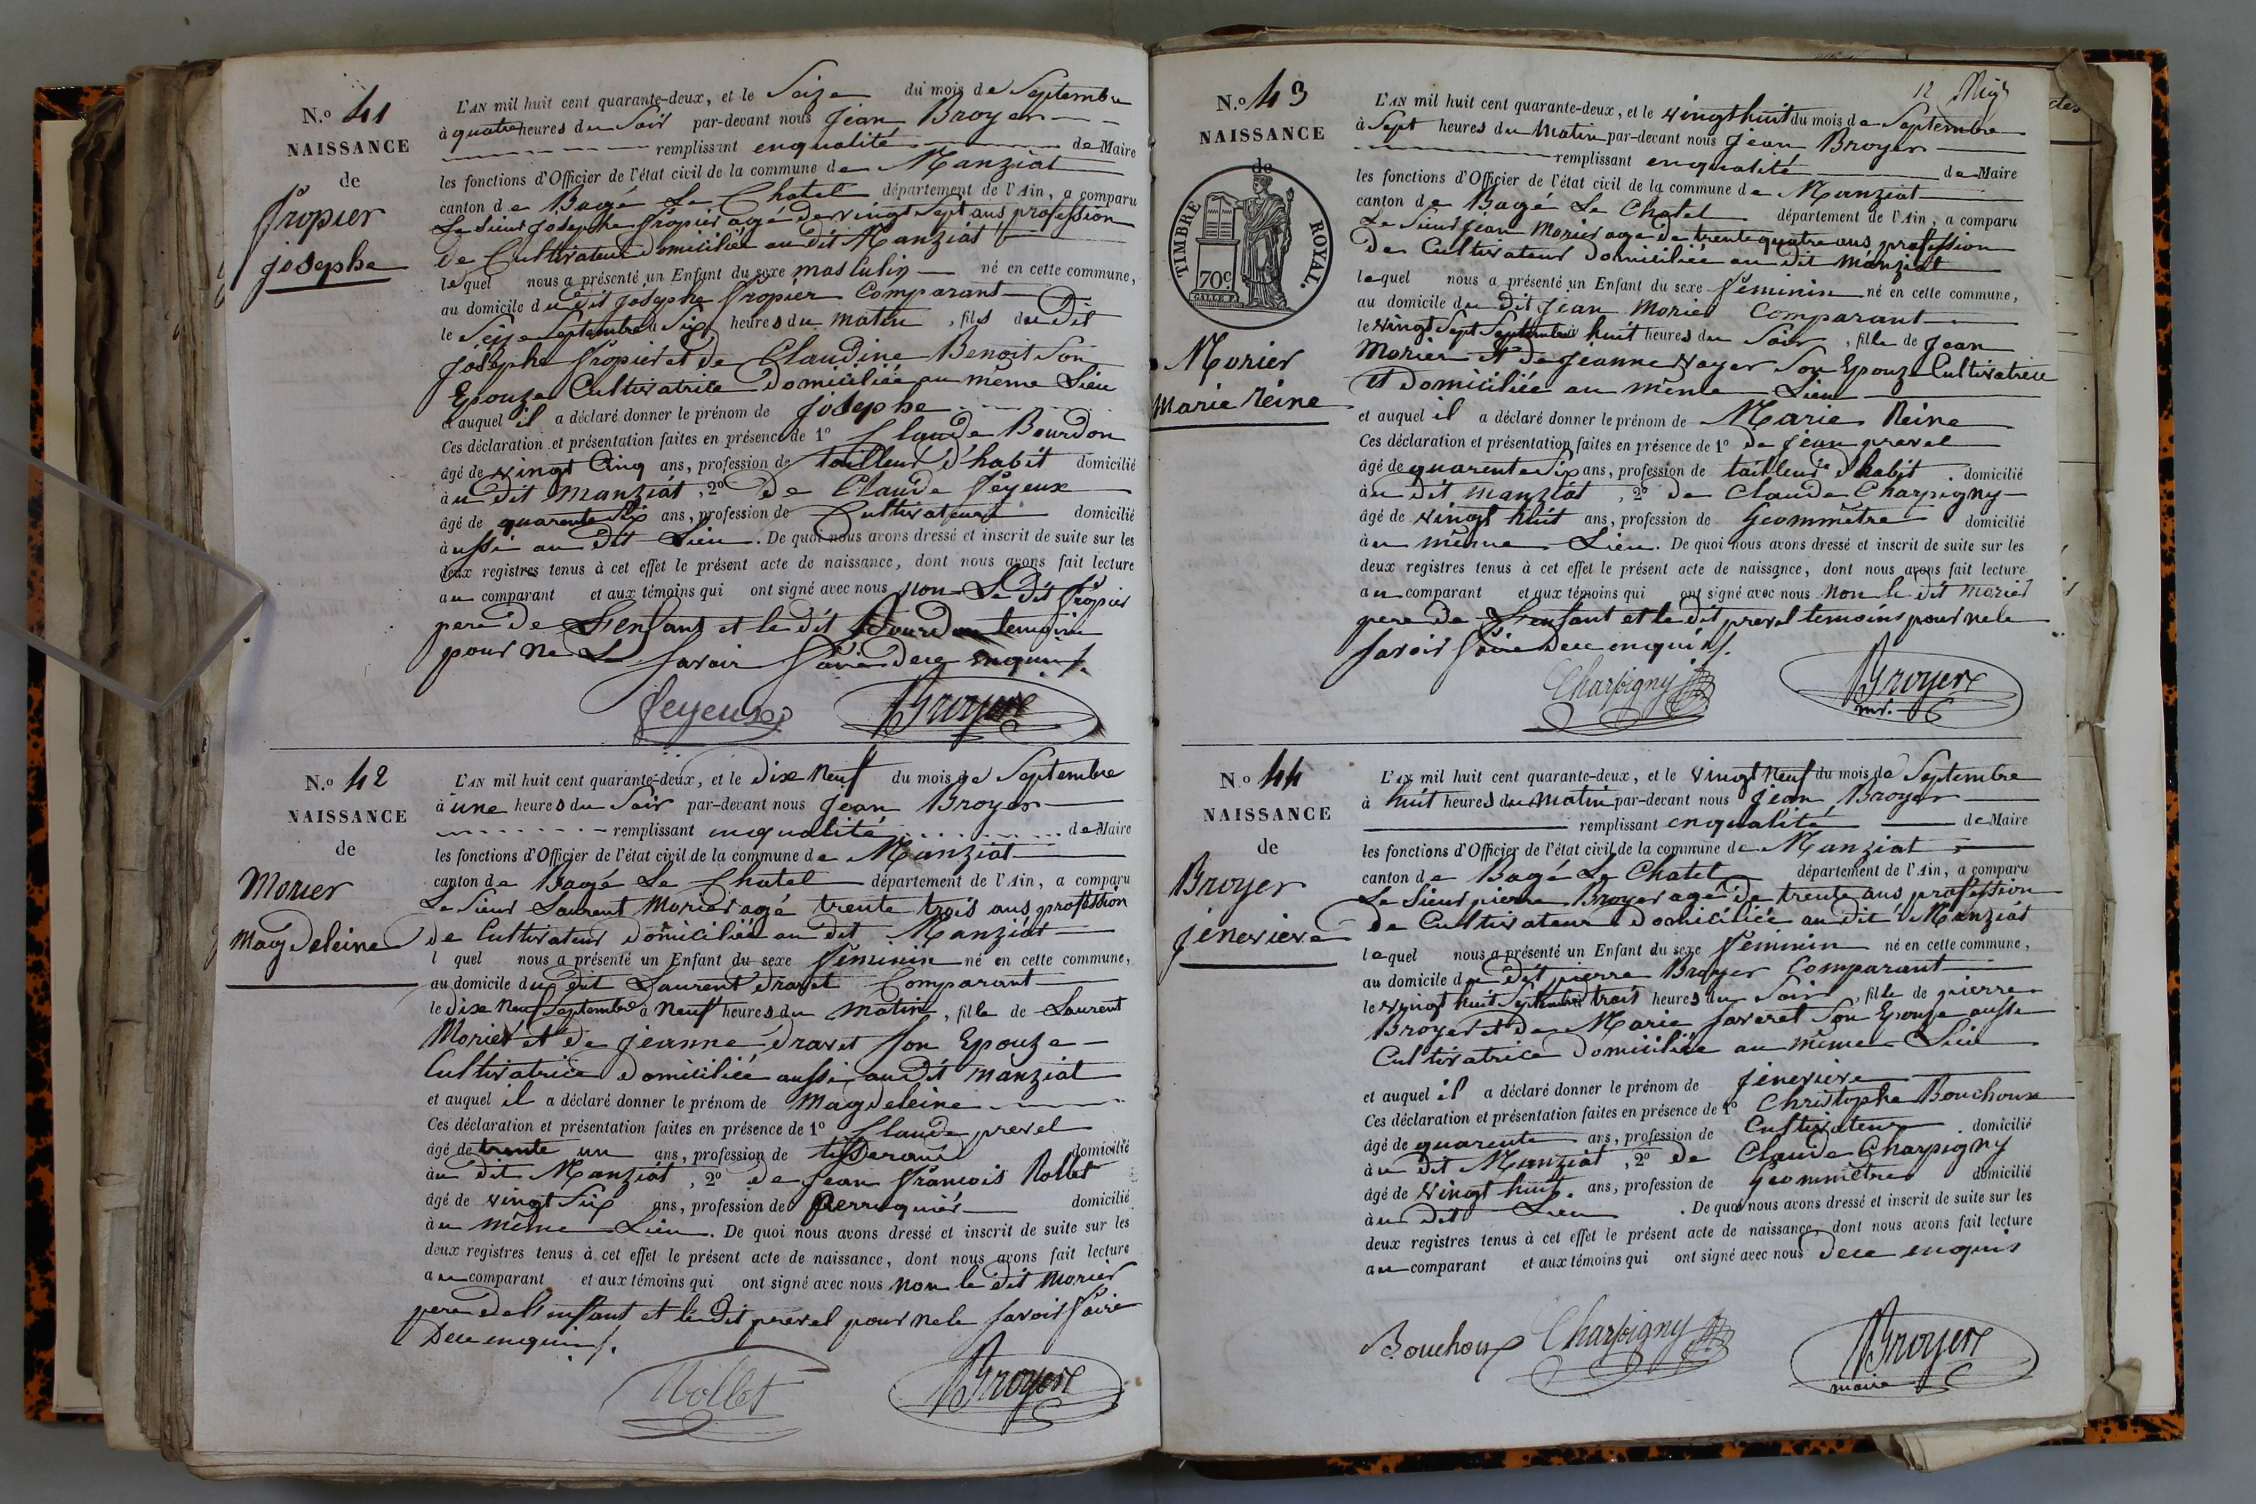 N.º 41
NAISSANCE
de
Fropier
josephe
L'AN mil huit cent quarante-deux, et le Seize du mois de Septembre
à quatre heures du Soir par-devant nous Jean Broyer
remplissant enqualité de Maire
les fonctions d'Officier de l'état civil de la commune de Manziat
canton de Bagé Le Chatel département de l'Ain, a comparu
Le Sieur Josephe Fropier agé de vingt Sept ans profession
de Cultivateur domiciliée au dit Manziat
lequel nous a présenté un Enfant du sexe masculin né en cette commune,
au domicile du dit Josephe Fropier Comparant
le Seize Septembre à Six heures du matin, fils du Dit
Josephe Fropier et de Claudine Benoit Son
Epouze Cultivatrice Domiciliée au même Lieu
et auquel il a déclaré donner le prénom de josephe
Ces déclaration et présentation faites en présence de 1º Claude Bourdon
âgé de vingt Cinq ans, profession de tailleur d'habit domicilié
à u dit Manziat, 2º de Claude Feyeux
âgé de quarente Six ans, profession de Cultivateur domicilié
à ussi au dit Lieu. De quoi nous avons dressé et inscrit de suite sur les
deux registres tenus à cet effet le présent acte de naissance, dont nous avons fait lecture
au comparant et aux témoins qui ont signé avec nous non Le dit Fropier
pere de L'enfant et le dit Bourdon temoin
pour ne Le Savoir Faire dece enquis f.
Feyeux Broyer
N.º 42
NAISSANCE
de
Morier
Magdeleine
L'AN mil huit cent quarante-deux, et le dixe neuf du mois de Septembre
à une heures du Soir par-devant nous Jean Broyer
remplissant enqualité de Maire
les fonctions d'Officier de l'état civil de la commune de Manziat
canton de Bagé Le Chatel département de l'Ain, a comparu
Le Sieur Laurent Morier agé trente trois ans profession
de Cultivateur domiciliée au dit Manziat
l quel nous a présenté un Enfant du sexe Féminin né en cette commune,
au domicile du dit Laurent dravet Comparant
le dixe neuf Septembre à neuf heures du matin, fille de Laurent
Morier et de jeanne dravet Son Epouze
Cultivatrice domiciliée aussi au dit manziat
et auquel il a déclaré donner le prénom de magdeleine
Ces déclaration et présentation faites en présence de 1º Claude prevel
âgé de trente un ans, profession de tisserand domicilié
à u dit Manziat, 2º de Jean François Rollet
âgé de vingt Six ans, profession de perruquiér domicilié
à u même Lieu. De quoi nous avons dressé et inscrit de suite sur les
deux registres tenus à cet effet le présent acte de naissance, dont nous avons fait lecture
au comparant et aux témoins qui ont signé avec nous non le dit morier
pere de l'enfant et le dit prevel pour nele Savoir Faire
Dece enquis f.
Rollet Broyer
12
N.º 43
NAISSANCE
de
TIMBRE ROYAL.
70c
Morier
Marie Reine
L'AN mil huit cent quarante-deux, et le vingt huit du mois de Septembre
à Sept heures du Matin par-devant nous Jean Broyer
remplissant enqualité de Maire
les fonctions d'Officier de l'état civil de la commune de Manziat
canton de Bagé Le Chatel département de l'Ain, a comparu
Le Sieur Jean Morier age de trente quatre ans profession
de Cultivateur domiciliée au dit manziat
lequel nous a présenté un Enfant du sexe Féminin né en cette commune,
au domicile du dit Jean Morier Comparant
le vingt Sept Septembre à huit heures du Soir, fille de Jean
Morier et de Jeanne Vayer Son Epouze Cultivatrice
et domiciliée au même Lieu
et auquel il a déclaré donner le prénom de Marie Reine
Ces déclaration et présentation faites en présence de 1º de Jean prevel
âgé de quarente Six ans, profession de tailleur d'habit domicilié
à u dit manziat, 2º de Claude Charpigny
âgé de vingt huit ans, profession de Géommêtre domicilié
à u même Lieu. De quoi nous avons dressé et inscrit de suite sur les
deux registres tenus à cet effet le présent acte de naissance, dont nous avons fait lecture
au comparant et aux témoins qui ont signé avec nous non le dit morier
pere de L'enfant et le dit prevel temoins pour nele
Savoir Faire dece enquis f.
Charpigny Broyer
mr.
N.º 44
NAISSANCE
de
Broyer
jénevieve
L'AN mil huit cent quarante-deux, et le vingt neuf du mois de Septembre
à huit heures du Matin par-devant nous Jean Broyer
remplissant enqualité de Maire
les fonctions d'Officier de l'état civil de la commune de Manziat
canton de Bagé Le Chatel département de l'Ain, a comparu
Le Sieur pierre Broyer agé de trente ans profession
de Cultivateur domiciliée au dit Manziat
lequel nous a présenté un Enfant du sexe Féminin né en cette commune,
au domicile du dit pierre Broyer Comparant
le vingt huit Septembre à trois heures du Soir, fille de pierre
Broyer et de Marie Faveret Son Epouse aussi
Cultivatrice domiciliée au même Lieu
et auquel il a déclaré donner le prénom de Jénevieve
Ces déclaration et présentation faites en présence de 1º Christophe Bouchoux
âgé de quarente ans, profession de Cultivateur domicilié
à u dit Manziat, 2º de Claude Charpigny
âgé de vingt huit ans, profession de Géommêtre domicilié
à u dit Lieu. De quoi nous avons dressé et inscrit de suite sur les
deux registres tenus à cet effet le présent acte de naissance, dont nous avons fait lecture
au comparant et aux témoins qui ont signé avec nous dece enquis
Bouchoux Charpigny Broyer
maire